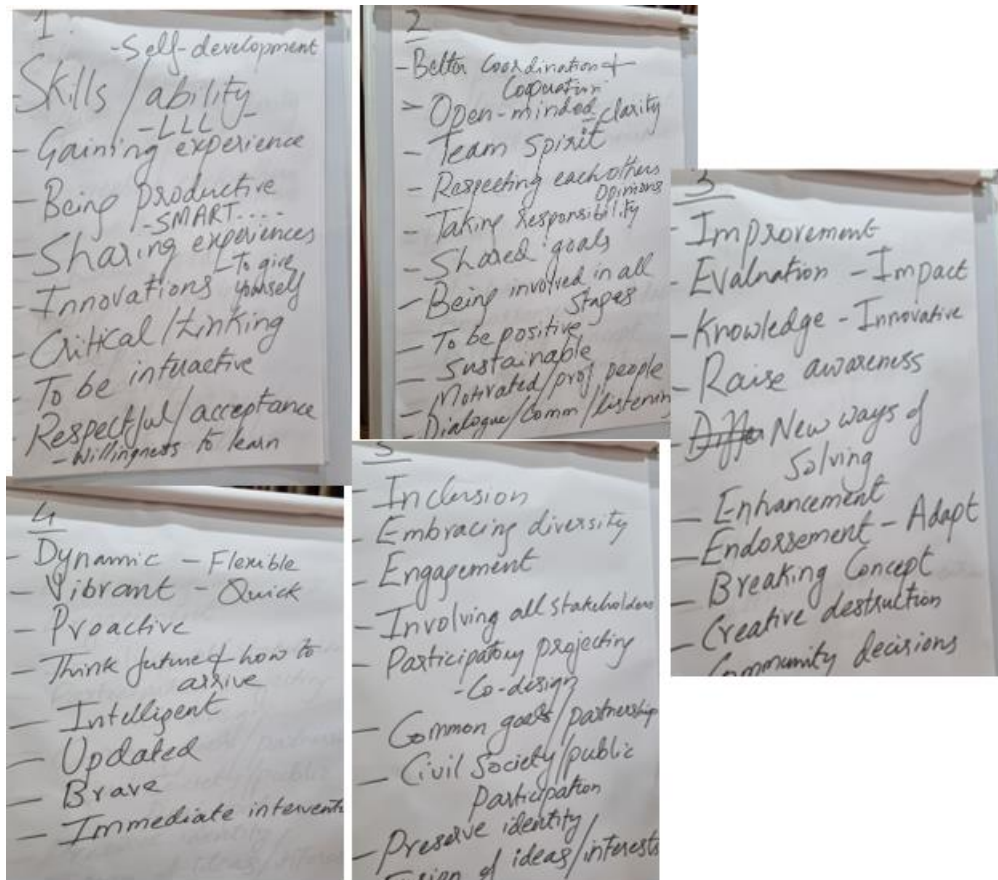 1.
- Self-development
- Skills / ability
- LLL -
- Gaining experience
- Being productive
- SMART....
- Sharing experiences
- To give
- Innovations yourself
- Critical / tinking
- To be interactive
- Respectful / acceptance
- Willingness to learn
2
- Better Coordination +
Cooperation
- Open-minded - Clarity
- Team Spirit
- Respecting each others
opinions
- Taking responsibility
- Shared goals
- Being involved in all
stages
- To be positive
- Sustainable
- Motivated / prof people
- Dialogue / Comm / listening
3
- Improvement
- Evaluation - Impact
- Knowledge - Innovative
- Raise awareness
- New ways of
Solving
- Enhancement
- Endorsement - Adapt
- Breaking Concept
- Creative destruction
- Community decisions
4
- Dynamic - Flexible
- Vibrant - Quick
- Proactive
- Think future & how to
arrive
- Intelligent
- Updated
- Brave
- Immediate interventi
5
- Inclusion
- Embracing diversity
- Engagement
- Involving all stakeholders
- Participatory projecting
- Co-design
- Common goals / partnership
- Civil Society / public
Participation
- Preserve identity
- Fusion of ideas / interests